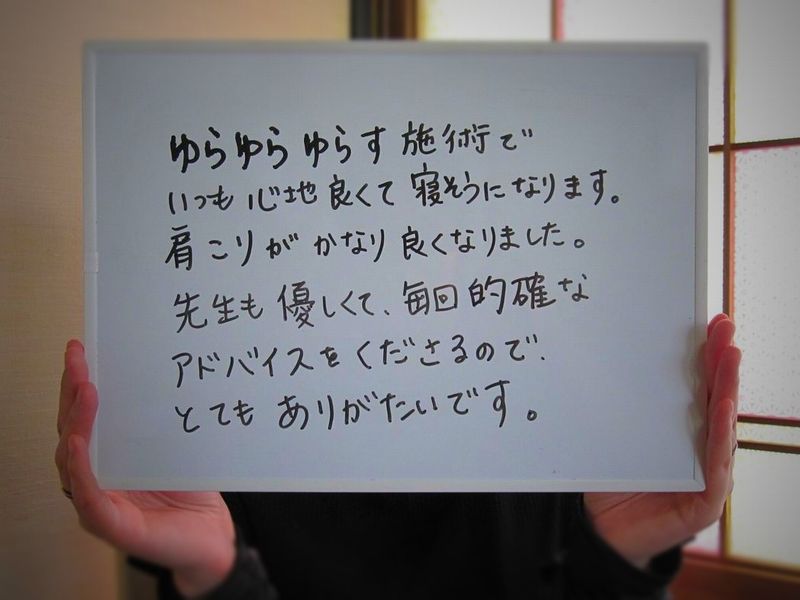 ゆらゆらゆらす施術で
いつも心地良くて寝そうになります。
肩こりがかなり良くなりました。
先生も優しくて、毎回的確な
アドバイスをくださるので、
とてもありがたいです。